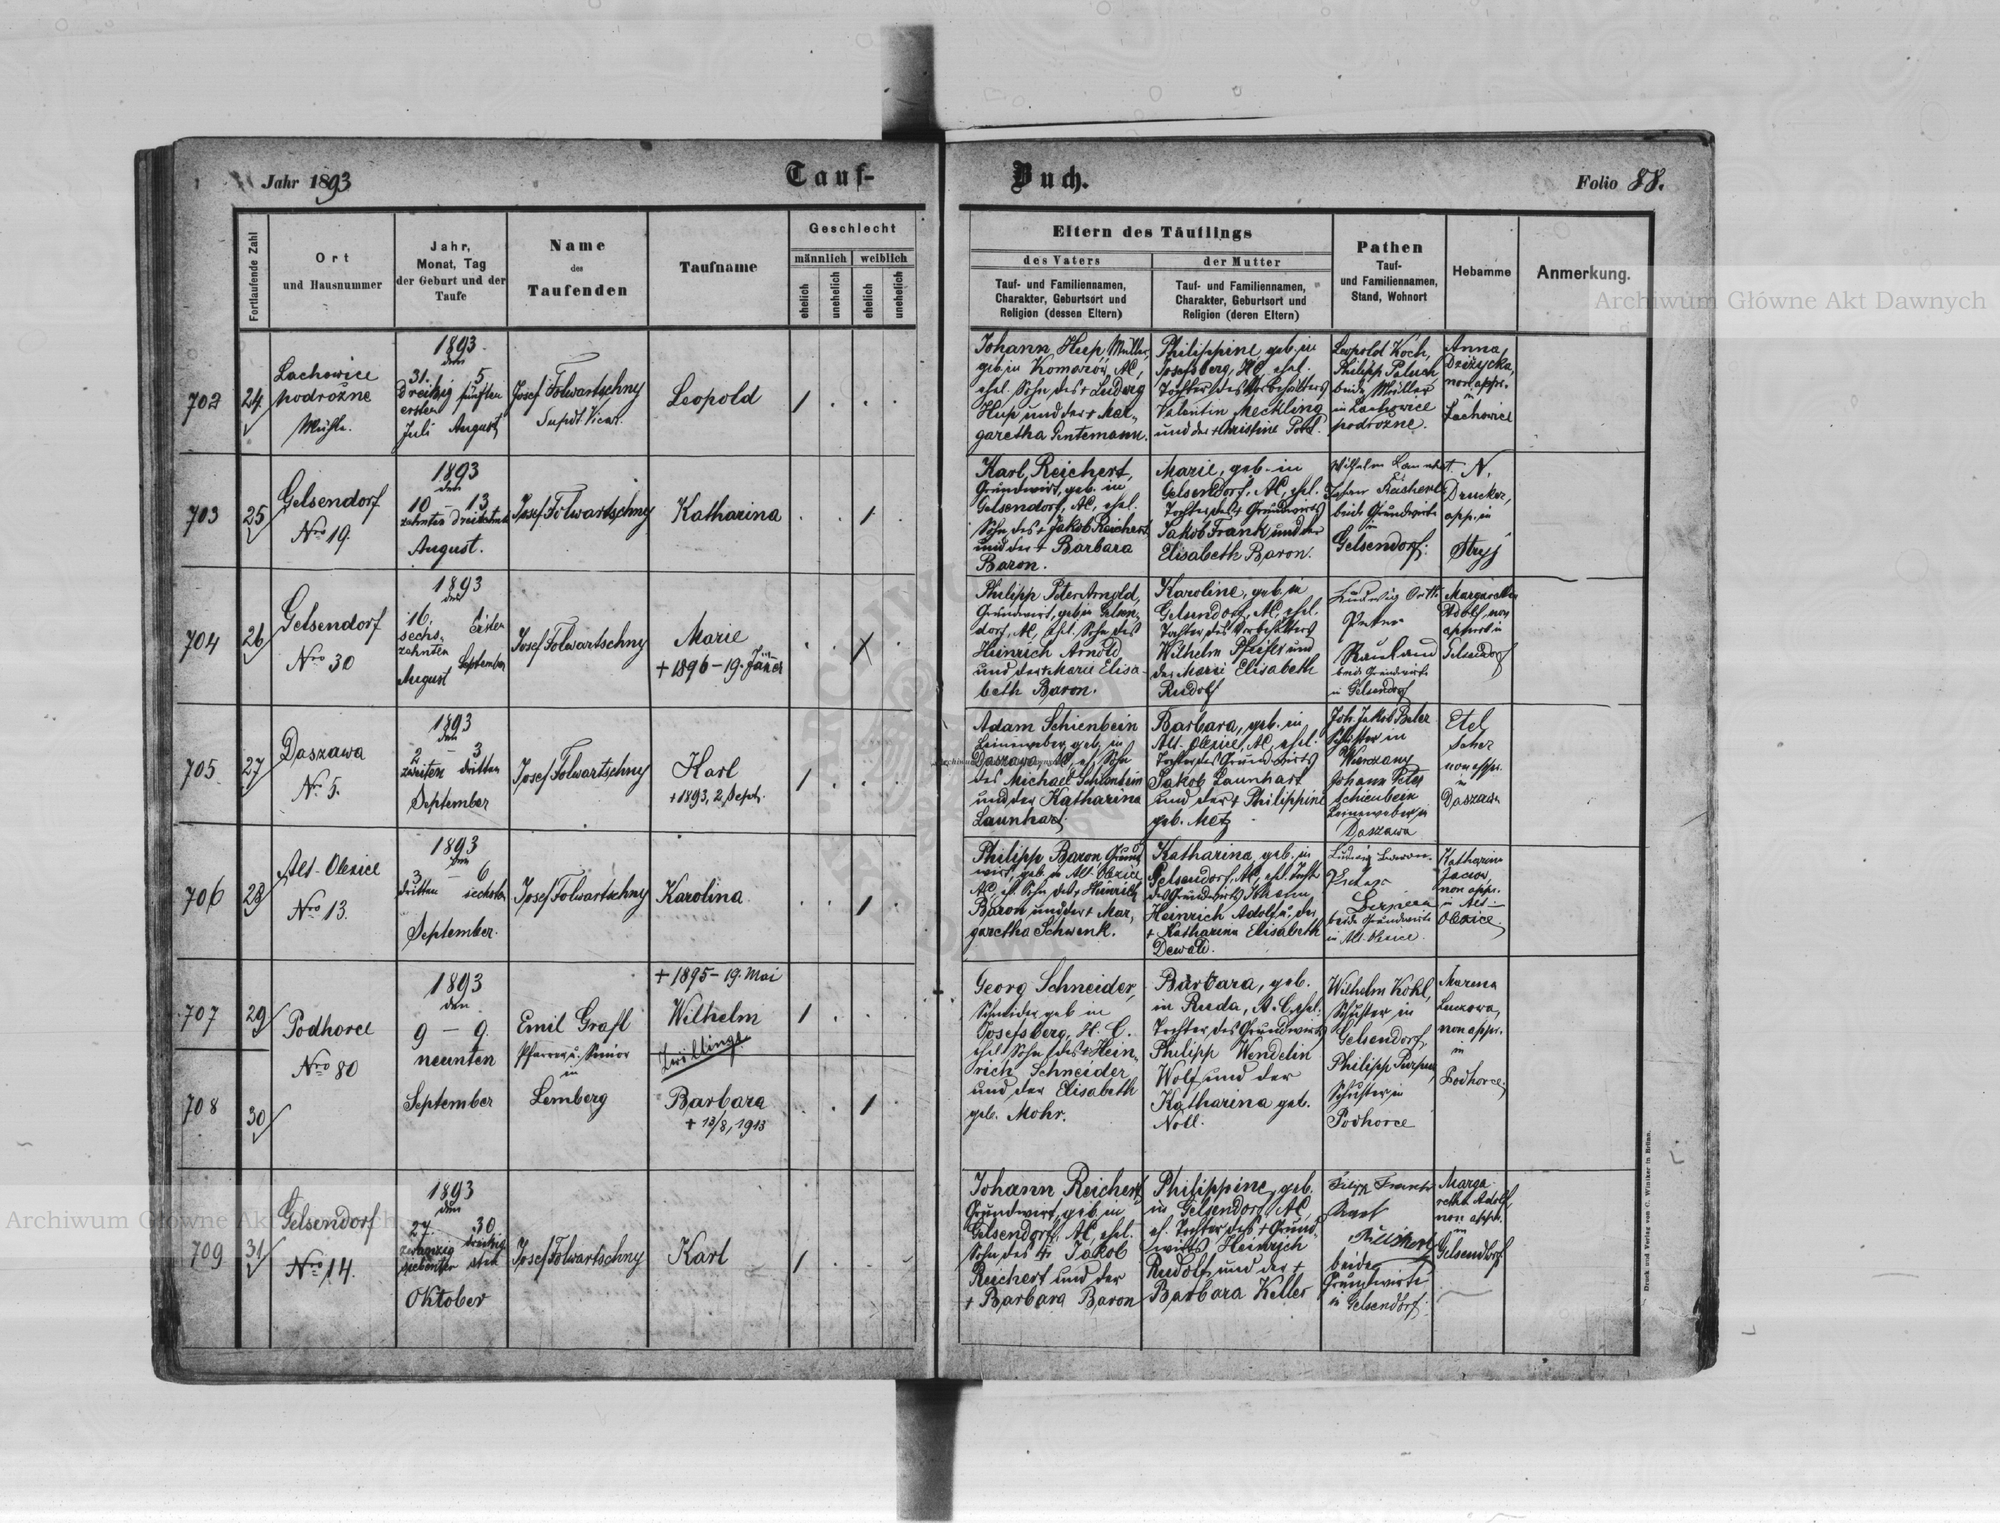 Jahr 1893
Tauf-
Buch.
Folio 88.
Fortlaufende Zahl
Ort
und Hausnummer
Jahr,
Monat, Tag
der Geburt und der
Taufe
Name
des
Taufenden
Taufname
Geschlecht
männlich
weiblich
ehelich
unehelich
ehelich
unehelich
Eltern des Täuflings
des Vaters
Tauf- und Familiennamen,
Charakter, Geburtsort und
Religion (dessen Eltern)
der Mutter
Tauf- und Familiennamen,
Charakter, Geburtsort und
Religion (deren Eltern)
Pathen
Tauf-
und Familiennamen,
Stand, Wohnort
Hebamme
Anmerkung.
702
24
Lachowice
podrożne
Mühle.
1893
den
31. 5.
Dreißig fünften
ersten
Juli August
Josef Folwartschny
Supdt. Vicar.
Leopold
1
Johann Hup, Müller,
geb. in Komorów, AC,
ehel. Sohn des + Ludwig
Hup, und der + Mar-
garetha Sentemann.
Philippine, geb. in
Josefsberg, HC, ehel.
Tochter des Vorbehälters
Valentin Meckling
und der + Christine
Leopold Koch,
Philipp
beide Müller
in Lachowice
podrożne.
Anna
non appr.
in
Lachowice
703
25
Gelsendorf
Nro 19.
1893
den
10 13.
zehnten
August.
Josef Folwartschny
Katharina
1
Karl Reichert,
Grundwirt, geb. in
Gelsendorf, AC, ehel.
Sohn des + Jakob Reichert
und der + Barbara
Baron.
Marie, geb. in
Gelsendorf, AC, ehel.
Tochter des + Grundwirts
Jakob Frank und der
Elisabeth Baron.
Wilhelm
Johann
beide Grundwirte
in
Gelsendorf.
N.
Drucker,
app. in
Stryj
704
26
Gelsendorf
Nro 30
1893
den
16. Ersten
sechs-
zehnten
August September
Josef Folwartschny
Marie
+ 1896 – 19. Jäner
Philipp Peter Arnold,
Grundwirt, geb. in Gelsen-
dorf, AC, ehel. Sohn des
Heinrich Arnold
und der + Marie Elisa-
beth Baron.
Karoline, geb. in
Gelsendorf, AC, ehel.
Tochter des Vorbehälters
Wilhelm Pfeifer und
der Marie Elisabeth
Rudolf
Ludwig
Peter
beide Grundwirte
in Gelsendorf
Margaretha
Adolf, non
in
Gelsendorf
705
27
Daszawa
Nro 5.
1893
den
2 – 3
zweiten dritten
September
Josef Folwartschny
Karl
+ 1893, 2. Sept.
1
Adam Schienbein
Leineweber, geb. in
Daszawa, AC, eh. Sohn
des Michael Schienbein
und der Katharina
Launhard.
Barbara, geb. in
Alt-Olexice, AC, ehel.
Tochter des Grundwirts
Jakob Launhart
und der + Philippine
geb. Metz
Joh. Jakob
in
Johann Peter
Schienbein
Leineweber in
Daszawa
Etel
non appr.
in
Daszawa
706
28
Alt-Olexice
Nro 13.
1893
den
3 – 6
dritten sechsten
September.
Josef Folwartschny
Karolina
1
Philipp Baron, Grund-
wirt, geb. in Alt-Olexice,
AC, eh. Sohn des + Heinrich
Baron und der + Mar-
garetha Schwenk.
Katharina, geb. in
Gelsendorf, AC, ehel. Tocht.
des Grundwirts Johann
Heinrich Adolf u. der
+ Katharina Elisabeth
Dewald.
Ludwig Baron
beide Grundwirte
in Alt-Olexice.
Katharina
non appr.
in Alt-
Olexice.
707
29
Podhorce
Nro 80
1893
den
9 – 9.
neunten
September
Emil Grafl
Pfarrer u. Senior
in
Lemberg
+ 1895 – 19. Mai
Wilhelm
Zwillinge
1
708
30
Barbara
+ 13/8, 1913
1
Georg Schneider,
Schneider, geb. in
Josefsberg, H.C.
ehel. Sohn des + Hein-
rich Schneider,
und der Elisabeth
geb. Mohr.
Barbara, geb.
in Ruda, A.C. ehel.
Tochter des Grundwirts
Philipp Wendelin
Wolf und der
Katharina geb.
Noll.
Wilhelm Kohl,
Schuster in
Gelsendorf,
Philipp
Schuster in
Podhorce
Marina
non appr.
in
Podhorce
709
31
Gelsendorf
Nro 14.
1893
den
27. 30.
zwanzig dreißig-
siebenten sten
Oktober
Josef Folwartschny
Karl
1
Johann Reichert,
Grundwirt, geb. in
Gelsendorf, AC, ehel.
Sohn des + Jakob
Reichert und der
+ Barbara Baron
Philippine, geb.
in Gelsendorf, AC,
eh. Tochter des + Grund-
wirts Heinrich
Rudolf und der +
Barbara Keller
beide
Grundwirte
in Gelsendorf.
Marga-
retha Adolf
non appr.
in
Gelsendorf
Druck und Verlag von C. Winiker in Brünn.
Archiwum Główne Akt Dawnych
Archiwum Główne Akt Dawnych